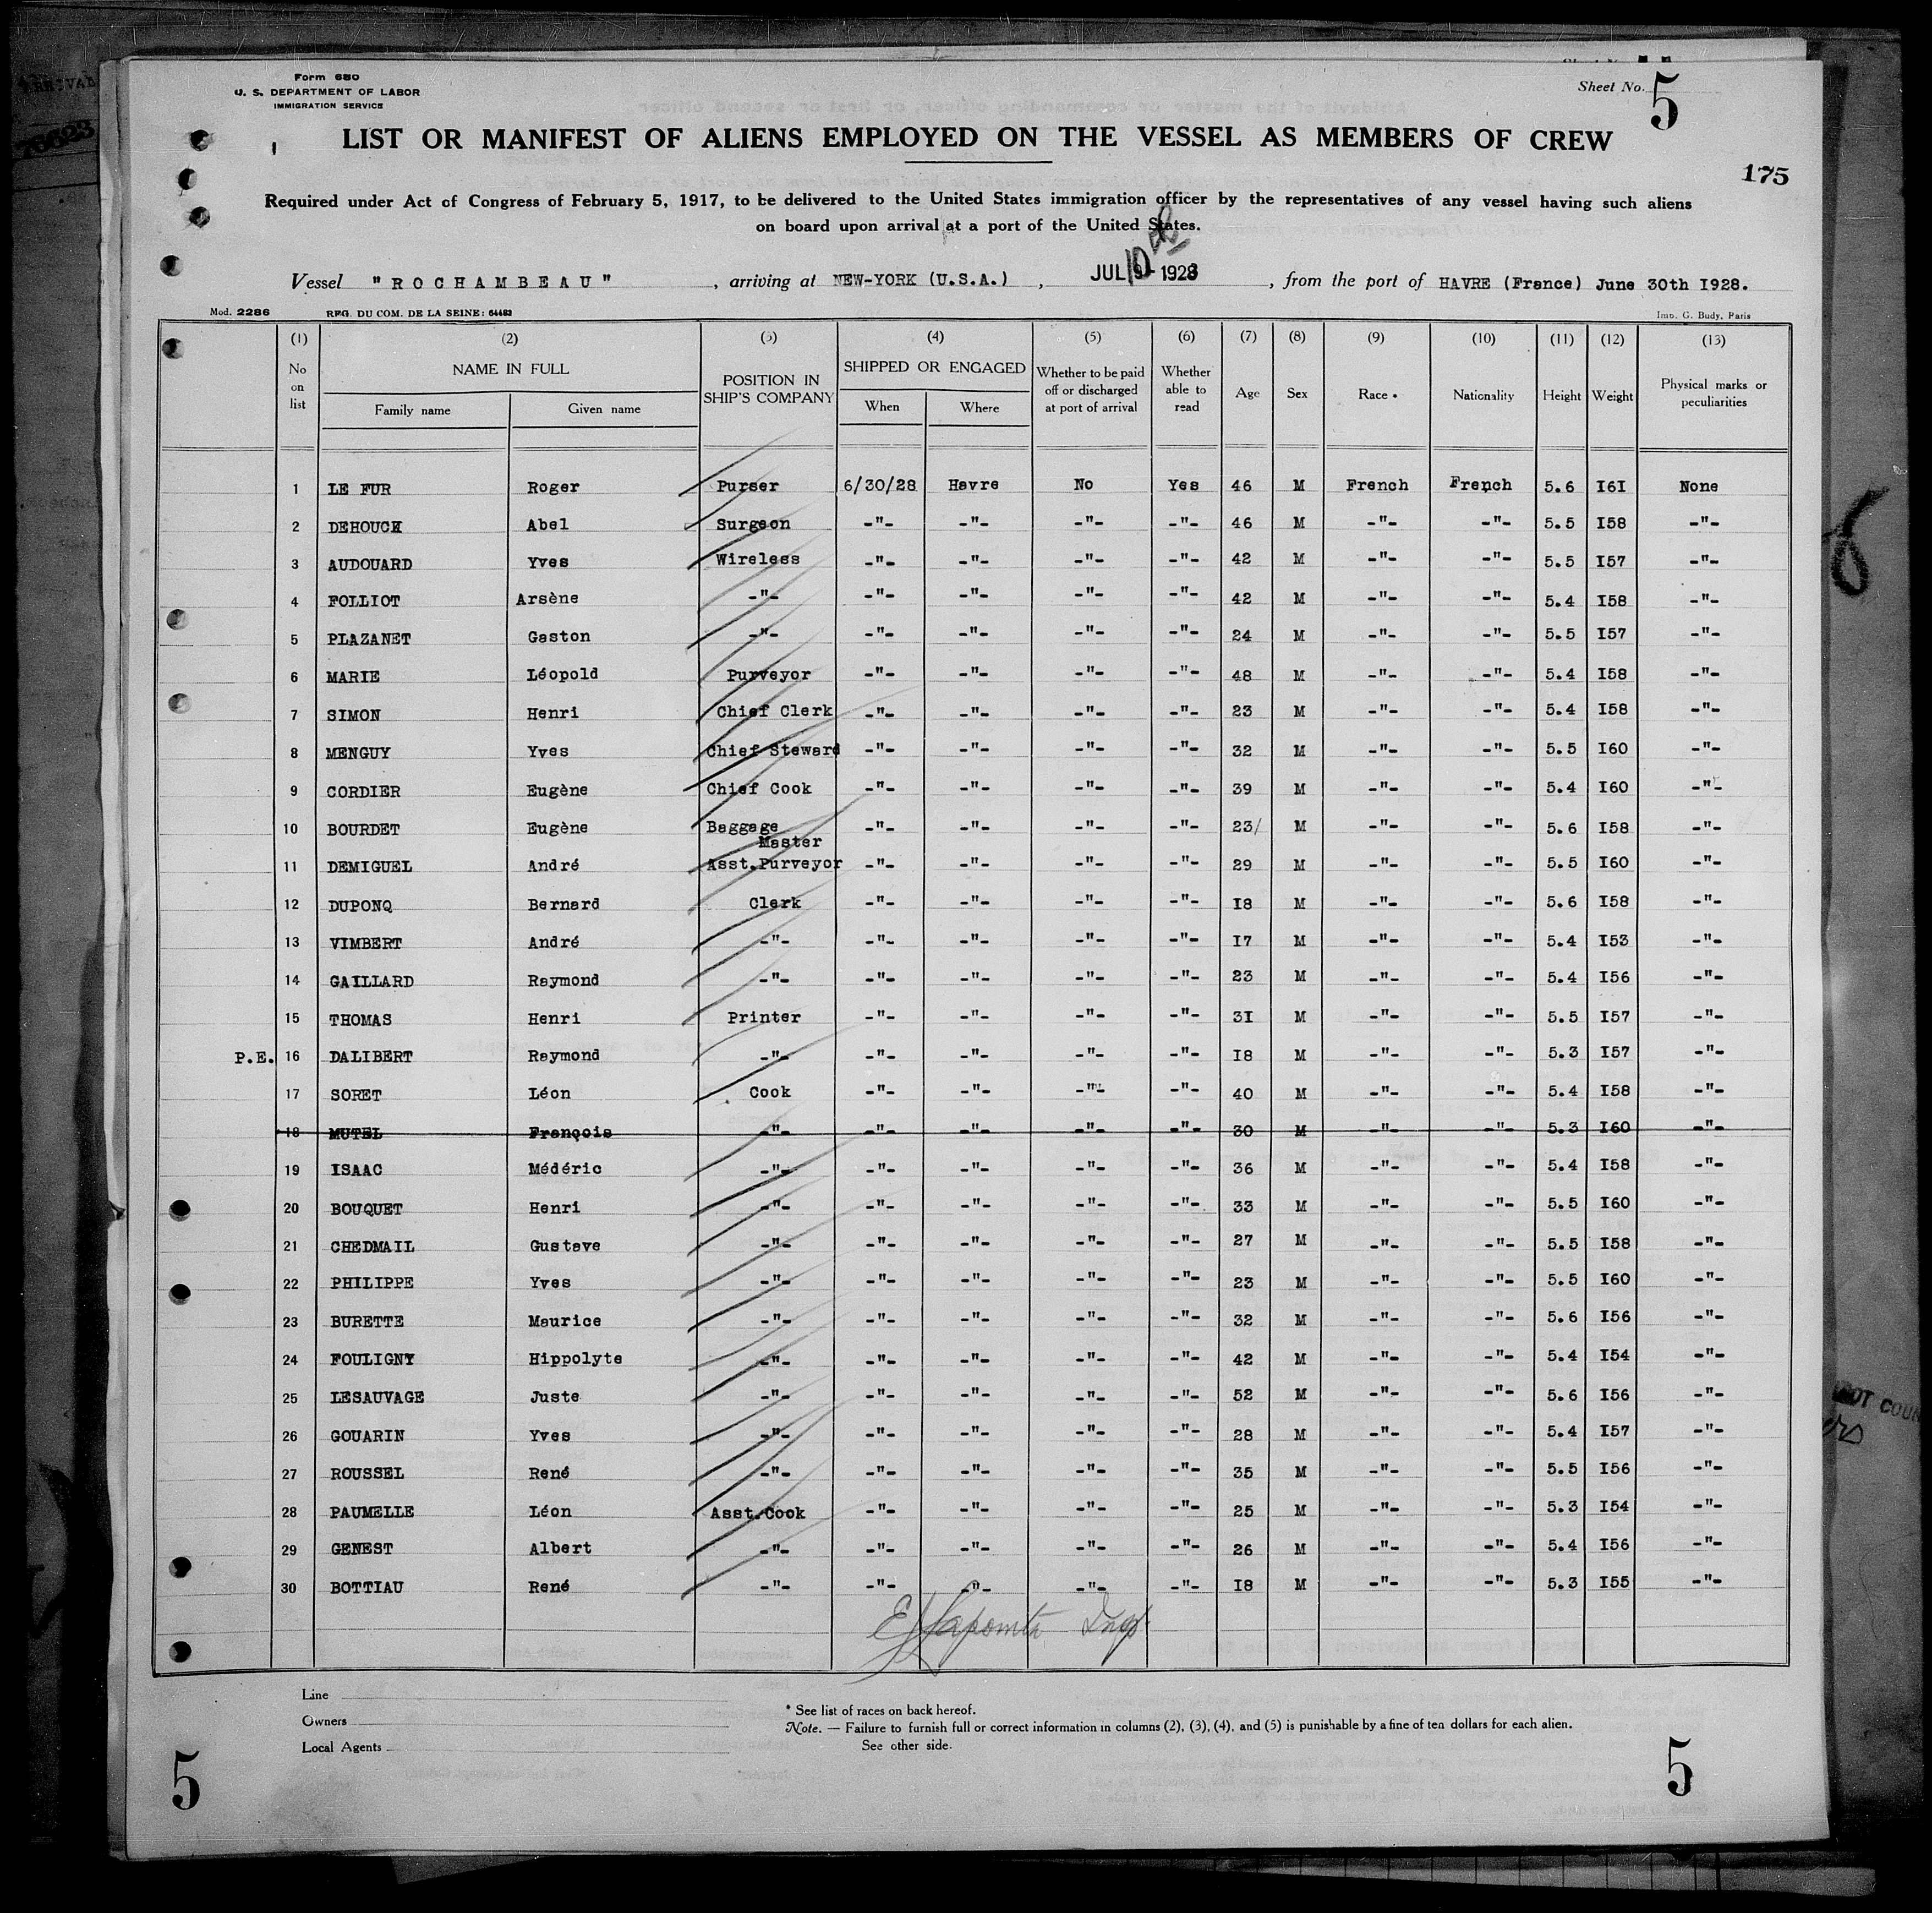 Form 680
U. S. DEPARTMENT OF LABOR
IMMIGRATION SERVICE
Sheet No. 5
LIST OR MANIFEST OF ALIENS EMPLOYED ON THE VESSEL AS MEMBERS OF CREW
175
Required under Act of Congress of February 5, 1917, to be delivered to the United States immigration officer by the representatives of any vessel having such aliens
on board upon arrival at a port of the United States.
Vessel "ROCHAMBEAU" , arriving at NEW-YORK (U.S.A.) , JUL 10 1928 , from the port of HAVRE (France) June 30th I928.
Mod. 2286 REG. DU COM. DE LA SEINE: 64483 Imp. G. Budy, Paris
(1) (2) (3) (4) (5) (6) (7) (8) (9) (10) (11) (12) (13)
No on list NAME IN FULL Family name Given name POSITION IN SHIP'S COMPANY SHIPPED OR ENGAGED When Where Whether to be paid off or discharged at port of arrival Whether able to read Age Sex Race * Nationality Height Weight Physical marks or peculiarities
1 LE FUR Roger Purser 6/30/28 Havre No Yes 46 M French French 5.6 I6I None
2 DEHOUCK Abel Surgeon -"- -"- -"- -"- 46 M -"- -"- 5.5 I58 -"-
3 AUDOUARD Yves Wireless -"- -"- -"- -"- 42 M -"- -"- 5.5 I57 -"-
4 FOLLIOT Arsène -"- -"- -"- -"- -"- 42 M -"- -"- 5.4 I58 -"-
5 PLAZANET Gaston -"- -"- -"- -"- -"- 24 M -"- -"- 5.5 I57 -"-
6 MARIE Léopold Purveyor -"- -"- -"- -"- 48 M -"- -"- 5.4 I58 -"-
7 SIMON Henri Chief Clerk -"- -"- -"- -"- 23 M -"- -"- 5.4 I58 -"-
8 MENGUY Yves Chief Steward -"- -"- -"- -"- 32 M -"- -"- 5.5 I60 -"-
9 CORDIER Eugène Chief Cook -"- -"- -"- -"- 39 M -"- -"- 5.4 I60 -"-
10 BOURDET Eugène Baggage Master -"- -"- -"- -"- 23/ M -"- -"- 5.6 I58 -"-
11 DEMIGUEL André Asst.Purveyor -"- -"- -"- -"- 29 M -"- -"- 5.5 I60 -"-
12 DUPONQ Bernard Clerk -"- -"- -"- -"- I8 M -"- -"- 5.6 I58 -"-
13 VIMBERT André -"- -"- -"- -"- -"- I7 M -"- -"- 5.4 I53 -"-
14 GAILLARD Raymond -"- -"- -"- -"- -"- 23 M -"- -"- 5.4 I56 -"-
15 THOMAS Henri Printer -"- -"- -"- -"- 3I M -"- -"- 5.5 I57 -"-
P.E. 16 DALIBERT Raymond -"- -"- -"- -"- -"- I8 M -"- -"- 5.3 I57 -"-
17 SORET Léon Cook -"- -"- -"- -"- 40 M -"- -"- 5.4 I58 -"-
18 MUTEL François -"- -"- -"- -"- -"- 30 M -"- -"- 5.3 I60 -"-
19 ISAAC Médéric -"- -"- -"- -"- -"- 36 M -"- -"- 5.4 I58 -"-
20 BOUQUET Henri -"- -"- -"- -"- -"- 33 M -"- -"- 5.5 I60 -"-
21 CHEDMAIL Gustave -"- -"- -"- -"- -"- 27 M -"- -"- 5.5 I58 -"-
22 PHILIPPE Yves -"- -"- -"- -"- -"- 23 M -"- -"- 5.5 I60 -"-
23 BURETTE Maurice -"- -"- -"- -"- -"- 32 M -"- -"- 5.6 I56 -"-
24 FOULIGNY Hippolyte -"- -"- -"- -"- -"- 42 M -"- -"- 5.4 I54 -"-
25 LESAUVAGE Juste -"- -"- -"- -"- -"- 52 M -"- -"- 5.6 I56 -"-
26 GOUARIN Yves -"- -"- -"- -"- -"- 28 M -"- -"- 5.4 I57 -"-
27 ROUSSEL René -"- -"- -"- -"- -"- 35 M -"- -"- 5.5 I56 -"-
28 PAUMELLE Léon Asst.Cook -"- -"- -"- -"- 25 M -"- -"- 5.3 I54 -"-
29 GENEST Albert -"- -"- -"- -"- -"- 26 M -"- -"- 5.4 I56 -"-
30 BOTTIAU René -"- -"- -"- -"- -"- I8 M -"- -"- 5.3 I55 -"-
Line
Owners
Local Agents
* See list of races on back hereof.
Note. — Failure to furnish full or correct information in columns (2), (3), (4), and (5) is punishable by a fine of ten dollars for each alien.
See other side.
5
5